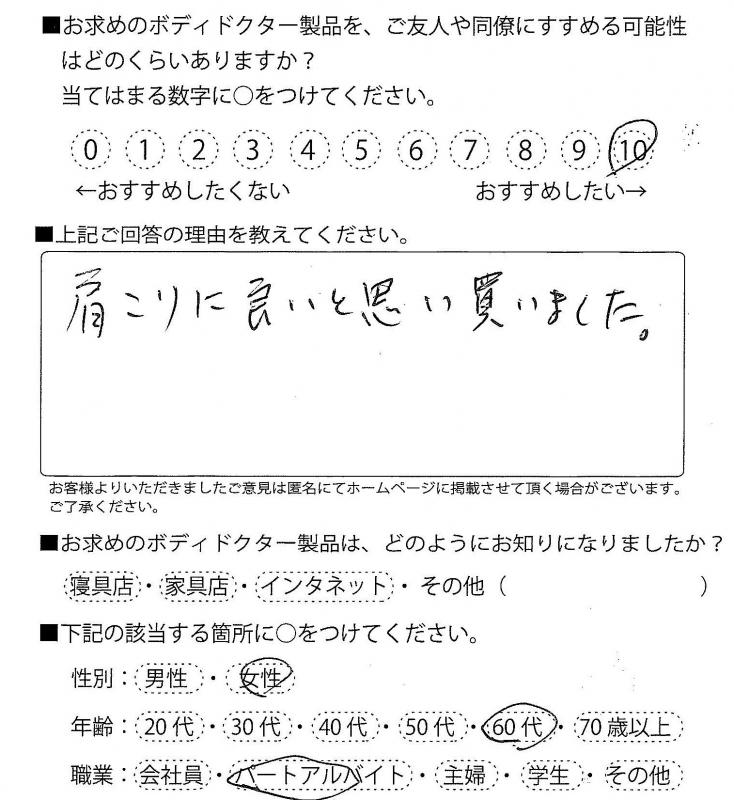 ■お求めのボディドクター製品を、ご友人や同僚にすすめる可能性
はどのくらいありますか？
当てはまる数字に○をつけてください。
0 1 2 3 4 5 6 7 8 9 10
←おすすめしたくない　おすすめしたい→
■上記ご回答の理由を教えてください。
肩こりに良いと思い買いました。
お客様よりいただきましたご意見は匿名にてホームページに掲載させて頂く場合がございます。
ご了承ください。
■お求めのボディドクター製品は、どのようにお知りになりましたか？
寝具店・家具店・インタネット・その他（　　　）
■下記の該当する箇所に○をつけてください。
性別：男性・女性
年齢：20代・30代・40代・50代・60代・70歳以上
職業：会社員・パートアルバイト・主婦・学生・その他